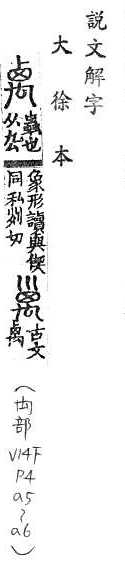 說文解字
大徐本
蟲也
从厹
象形讀與偰
同私列切
古文
禼
(禸部 V14下 P4 a5~a6)